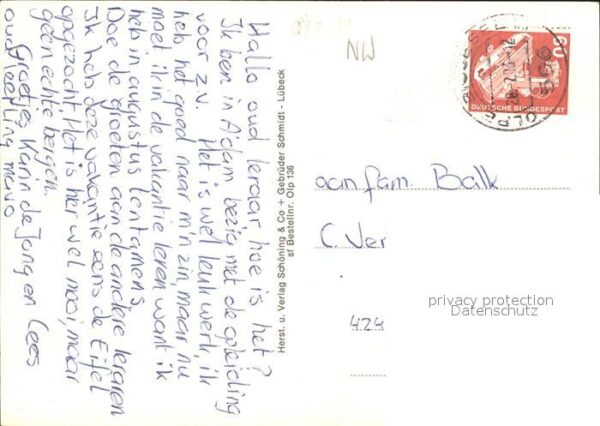 Hallo oud leraar hoe is het?
Ik ben in A'dam bezig met de opleiding
voor z.v. Het is wel leuk werk ik
heb het goed naar m'n zin, maar nu
moet ik in de vakantie leren want ik
heb in augustus tentamens.
Doe de groeten aan de andere leraren
Ik heb deze vakantie eens de Eifel
opgezocht Het is hier wel mooi, maar
geen echte bergen.
Groetjes Karin de Jong en Cees
oud leerling mavo
Herst. u. Verlag Schöning & Co + Gebrüder Schmidt - Lübeck
st Bestellnr. Olp 136
NW
60
DEUTSCHE BUNDESPOST
OLPE
aan fam. Balk
C. Ver
424
privacy protection
Datenschutz